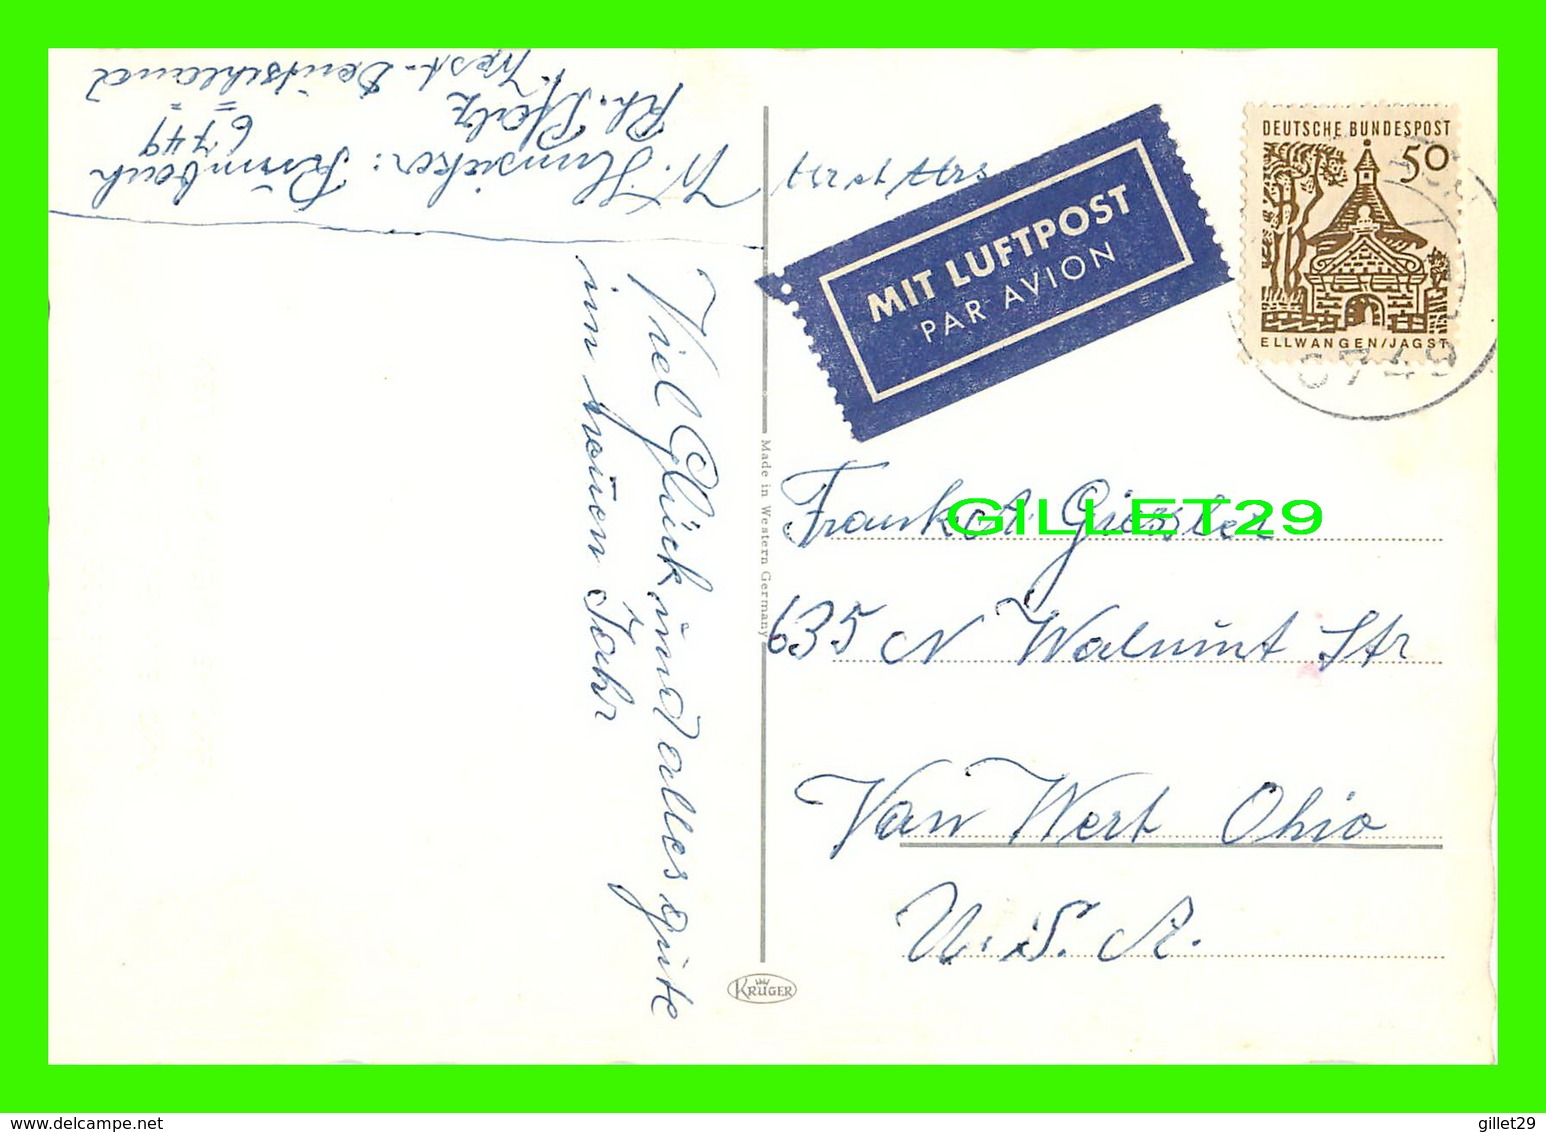 W. Hunsicker: Rumbach
6749
Rh. Pfalz
West-Deutschland
Viel Glück und alles gute
im neuen Jahr
Made in Western Germany
KRÜGER
MIT LUFTPOST
PAR AVION
DEUTSCHE BUNDESPOST
50
ELLWANGEN/JAGST
6749
GILLET29
635 N Walnut Str
Van Wert Ohio
U.S.A.
gillet29